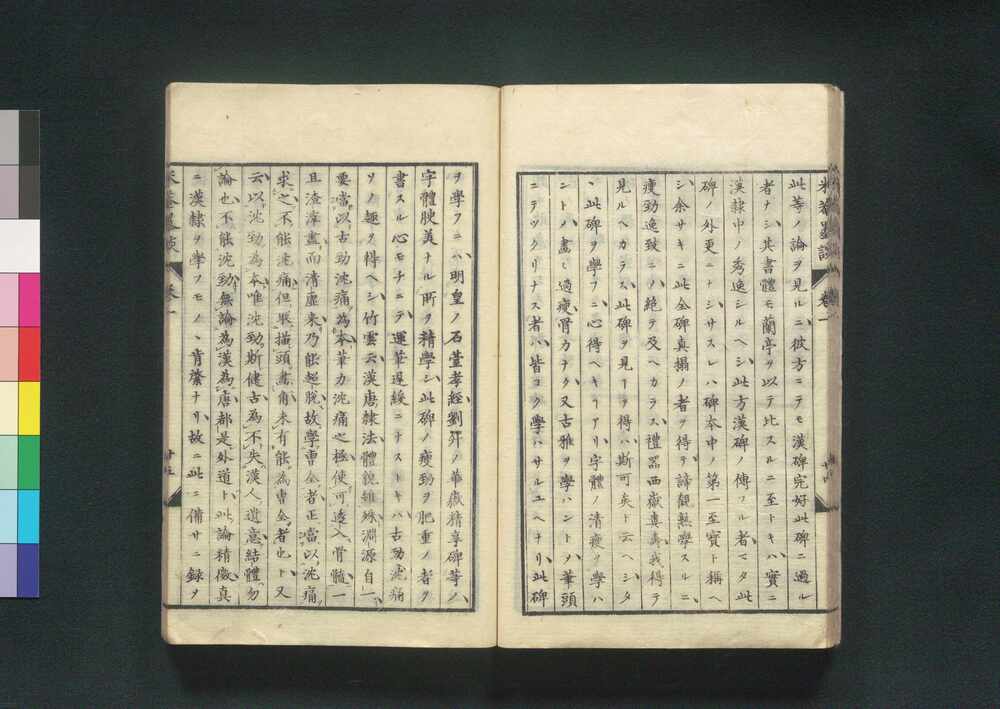 此等ノ論ヲ見ルニ彼方ニテモ漢碑完好此碑ニ過ル
者ナシ其書體モ蘭亭ヲ以テ比スルニ至トキハ實ニ
漢隸中ノ秀逸シルヘシ此方漢碑ノ傳フル者マタ此
碑ノ外更ニナシサスレハ碑本中ノ第一至寶ト稱ヘ
シ余サキニ此全碑真搨ノ者ヲ得テ諦觀熟學スルニ
瘦勁逸致ニノ絶テ及ヘカラス禮器西嶽婁壽我得テ
見ルヘカラス此碑ヲ見ーヲ得ハ斯可矣ト云ヘシタ
、此碑ヲ學フニ心得ヘキーアリ字體ノ清瘦ヲ學ハ
ントノ畫ミ過瘦骨力ナク又古雅ヲ學ハントノ筆頭
ニテツクリナス者ハ皆ヨク學ハサルユヘナリ此碑
ヲ學フニハ明皇ノ石臺孝經劉升ノ華嶽精享碑等ノ
字體腴美ナル所ヲ精學シ此碑ノ瘦勁ヲ肥重ノ者ヲ
書スル心モチニテ運筆遲緩ニナストキハ古勁沈痛
ソノ趣ヲ得ヘシ竹雲云漢唐隸法體貌雖殊淵源自一
要當以古勁沈痛為本筆力沈痛之極使可透入骨髓一
且渣滓盡而清虛来乃能超脱故學曹全者正當以沈痛
求之不能沈痛但𭣣描頭畫角未有能為曹全者也ト又
云以沈勁為本唯沈勁斯健古為不失漢人遺意結體勿
論也不能沈勁無論為漢為唐都是外道ト此論精微真
ニ漢隸ヲ學フモノ、肯綮ナリ故ニ此ニ備サニ録ヲ